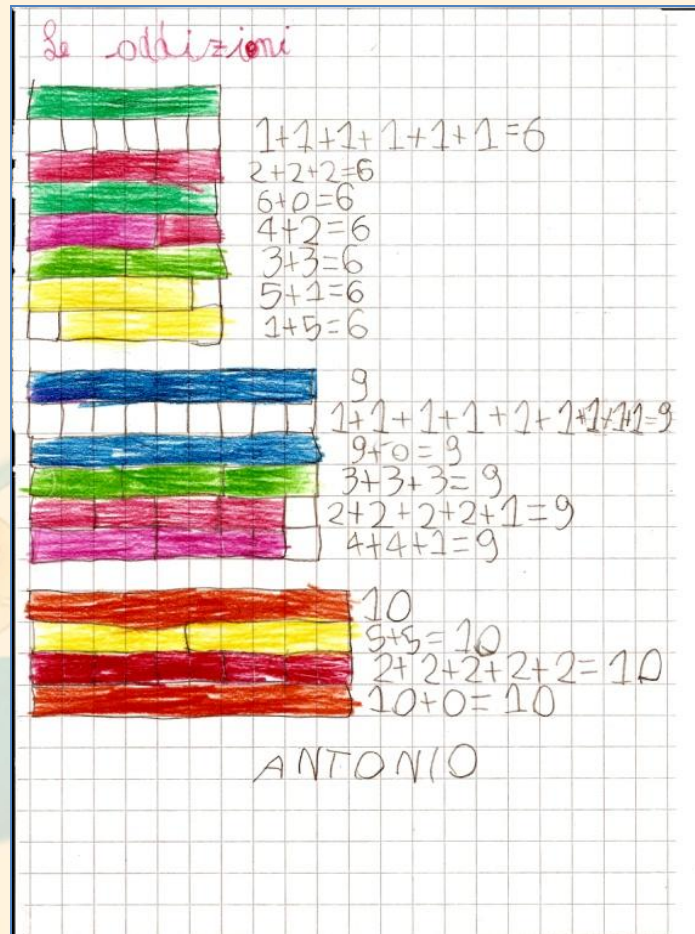 Le addizioni
1+1+1+1+1+1=6
2+2+2=6
6+0=6
4+2=6
3+3=6
5+1=6
1+5=6
9
1+1+1+1+1+1+1+1+1=9
9+0=9
3+3+3=9
2+2+2+2+1=9
4+4+1=9
10
5+5=10
2+2+2+2+2=10
10+0=10
ANTONIO